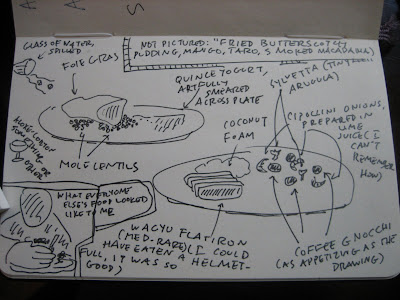 GLASS OF WATER,
SPILLED
NOT PICTURED: "FRIED BUTTERSCOTCH
PUDDING, MANGO, TARO, SMOKED MACADAMIA"
FOIE GRAS
QUINCE YOGURT,
ARTFULLY
SMEARED
ACROSS PLATE
MOLE LENTILS
SYLVETTA (TINY
ARUGULA)
CIPOLLINI ONIONS,
PREPARED IN
LIME
JUICE (I CAN'T
REMEMBER
HOW)
COCONUT
FOAM
SOMETHING
OR OTHER
WHAT EVERYONE
ELSE'S FOOD LOOKED
LIKE TO ME
WAGYU FLATIRON
(MED-RARE) (I COULD
HAVE EATEN A HELMET-
FULL, IT WAS SO
GOOD)
COFFEE GNOCCHI
(AS APPETIZING AS THE
DRAWING)